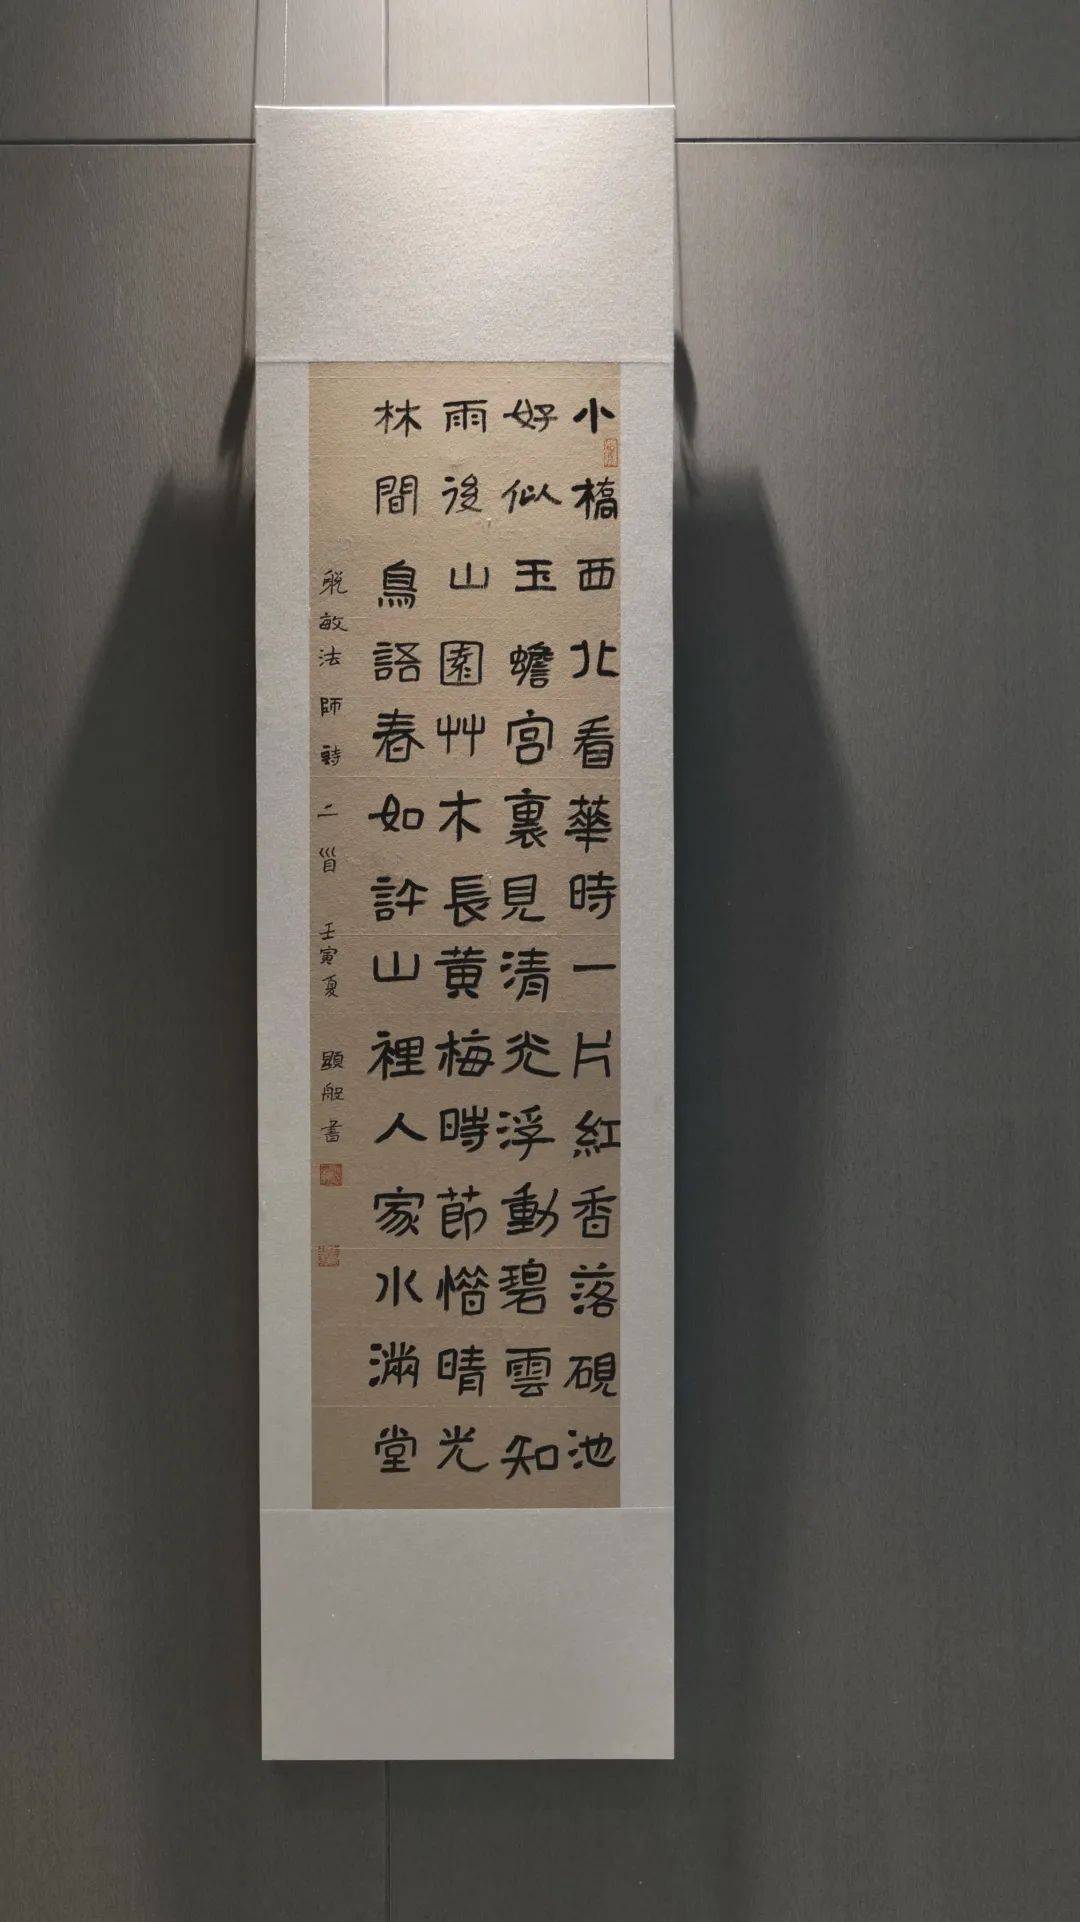 小橋西北看華時一片紅香落硯池
好似玉蟾宮裏見清光浮動碧雲知
雨後山園艸木長黄梅時節惜晴光
林間鳥語春如許山裡人家水滿堂
敏法師詩二首 壬寅夏 顯般書